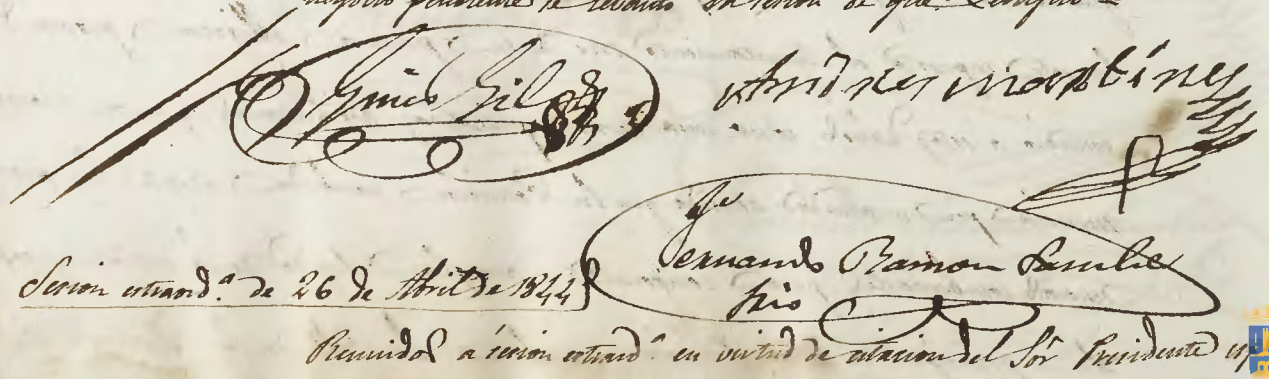 negocio pendiente se levantó la sesion de que certifico =
Gines Gil
Andres martines
Fernando Ramon
Srio
Sesion estraord.ª de 26 de Abril de 1844
Reunidos a sesion estraord.ª en virtud de citacion del Sor Presidente